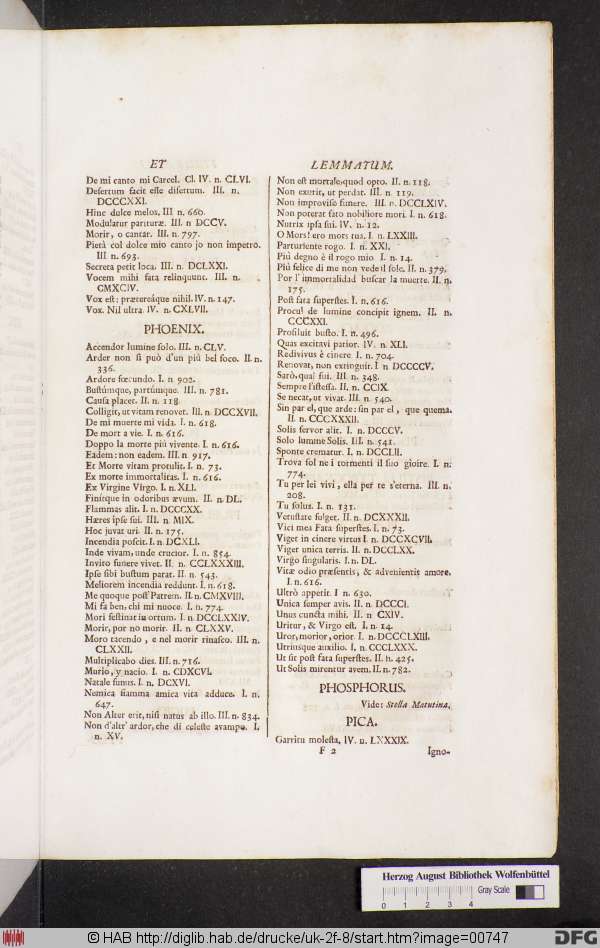 ET
De mi canto mi Carcel. Cl. IV. n. CLVI.
Desertum facit esse disertum. III. n.
DCCCXXI.
Hinc dulce melos. III n. 660.
Modulatur parituræ. III. n DCCV.
Morir, o cantar. III. n. 797.
Pietà col dolce mio canto jo non impetro.
III. n. 693.
Secreta petit loca. III. n. DCLXXI.
Vocem mihi fata relinquunt. III. n.
CMXCIV.
Vox est; prætereáque nihil. IV. n. 147.
Vox. Nil ultra. IV. n. CXLVII.
PHOENIX.
Accendor lumine solo. III. n. CLV.
Arder non si può d'un più bel foco. II. n.
336.
Ardore fœcundo. I. n. 902.
Bustúmque, partúmque. III. n. 781.
Causa placet. II. n. 118.
Colligit, ut vitam renovet. III. n. DCCXVII.
De mi muerte mi vida. I. n. 618.
De mort a vie. I. n. 616.
Doppo la morte più vivente. I. n. 616.
Eadem: non eadem. III. n. 917.
Et Morte vitam protulit. I. n. 73.
Ex morte immortalitas. I. n. 616.
Ex Virgine Virgo. I. n. XLI.
Finítque in odoribus ævum. II. n. DL.
Flammas alit. I. n. DCCCXX.
Hæres ipse sui. III. n. MIX.
Hoc juvat uri. II. n. 175.
Incendia poscit. I. n. DCXLI.
Inde vivam, unde crucior. I. n. 854.
Invito funere vivet. II. n. CCLXXXIII.
Ipse sibi bustum parat. II. n. 543.
Meliorem incendia reddunt. I. n. 618.
Me quoque post Patrem. II. n. CMXVIII.
Mi fa ben, chi mi nuoce. I. n. 774.
Mori festinat in ortum. I. n. DCCLXXIV.
Morir, por no morir. II. n. CLXXV.
Moro tacendo, e nel morir rinasco. III. n.
CLXXII.
Multiplicabo dies. III. n. 716.
Murio, y nacio. I. n. CDXCVI.
Natale funus. I. n. DCXVI.
Nemica fiamma amica vita adduce. I. n.
647.
Non Alter erit, nisi natus ab illo. III. n. 834.
Non d'altr' ardor, che di celeste avampo. I.
n. XV.
LEMMATUM.
Non est mortale, quod opto. II. n. 118.
Non exurit, ut perdat. III. n. 119.
Non improviso funere. III. n. DCCLXIV.
Non poterat fato nobiliore mori. I. n. 618.
Nutrix ipsa sui. IV. n. 12.
O Mors! ero mors tua. I. n. LXXIII.
Parturiente rogo. I. n. XXI.
Più degno è il rogo mio I. n. 14.
Più felice di me non vede il sole. II. n. 379.
Por l'immortalidad buscar la muerte. II. n.
175.
Post fata superstes. I. n. 616.
Procul de lumine concipit ignem. II. n.
CCCXXI.
Prosiluit busto. I. n. 496.
Quas excitavi patior. IV. n. XLI.
Redivivus è cinere I. n. 704.
Renovat, non extinguit. I n DCCCCV.
Sarò, qual fui. III. n. 348.
Sempre l'istessa. II. n. CCIX.
Se necat, ut vivat. III. n. 540.
Sin par el, que arde: sin par el, que quema.
II. n. CCCXXXII.
Solis fervor alit. I. n. DCCCV.
Solo lumine Solis. III. n. 541.
Sponte crematur. I. n. DCCLII.
Trova sol ne i tormenti il suo gioire. I. n.
774.
Tu per lei vivi, ella per te s'eterna. III. n.
208.
Tu solus. I. n. 131.
Vetustate fulget. II. n. DCXXXII.
Vici mea Fata superstes. I. n. 73.
Viget in cinere virtus I n. DCCXCVII.
Viget unica terris. II. n. DCCLXX.
Virgo singularis. I. n. DL.
Vitæ odio præsentis, & advenientis amore.
I. n. 616.
Ultrò appetit. I n. 630.
Unica semper avis. II. n DCCCI.
Unus cuncta mihi. II n CXIV.
Uritur, & Virgo est. I. n. 14.
Uror, morior, orior. I. n. DCCCLXIII.
Utriusque auxilio. I. n. CCCLXXX.
Ut sit post fata superstes. II. n. 425.
Ut Solis mirentur avem. II. n. 782.
PHOSPHORUS.
Vide: Stella Matutina.
PICA.
Garritu molesta, IV. n. LXXXIX.
F 2
Igno-
Herzog August Bibliothek Wolfenbüttel
Gray Scale
0 1 2 3 4
© HAB http://diglib.hab.de/drucke/uk-2f-8/start.htm?image=00747
DFG